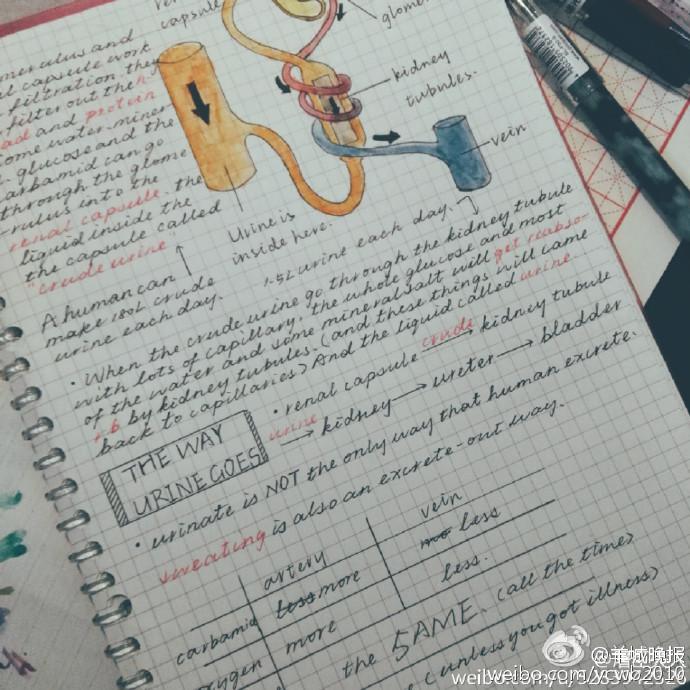 renal
capsule
glome
kidney
tubules.
vein
Urine is
inside here.
merulus and
al capsule work
filtration. they
filter out the
and protein
some water, miner
glucose and the
carbamid can go
through the glome
rulus into the
renal capsule. the
liquid inside the
the capsule called
"crude urine
A human can
make 180L crude
urine each day.
1.5L urine each day.
· When the crude urine go through the kidney tubule
with lots of capillary, the whole glucose and most
of the water and some mineral salt will get reabso-
rb by kidney tubules. (and these things will came
back to capillaries) And the liquid called urine.
· renal capsule crude urine → kidney tubule
→ kidney → ureter → bladder
THE WAY
URINE GOES
· urinate is NOT the only way that human excrete.
sweating is also an excrete-out way.
artery vein
carbamid less more less
oxygen more less.
the SAME. (all the time)
(unless you got illness)
@羊城晚报
weibo.com/ycwb2010